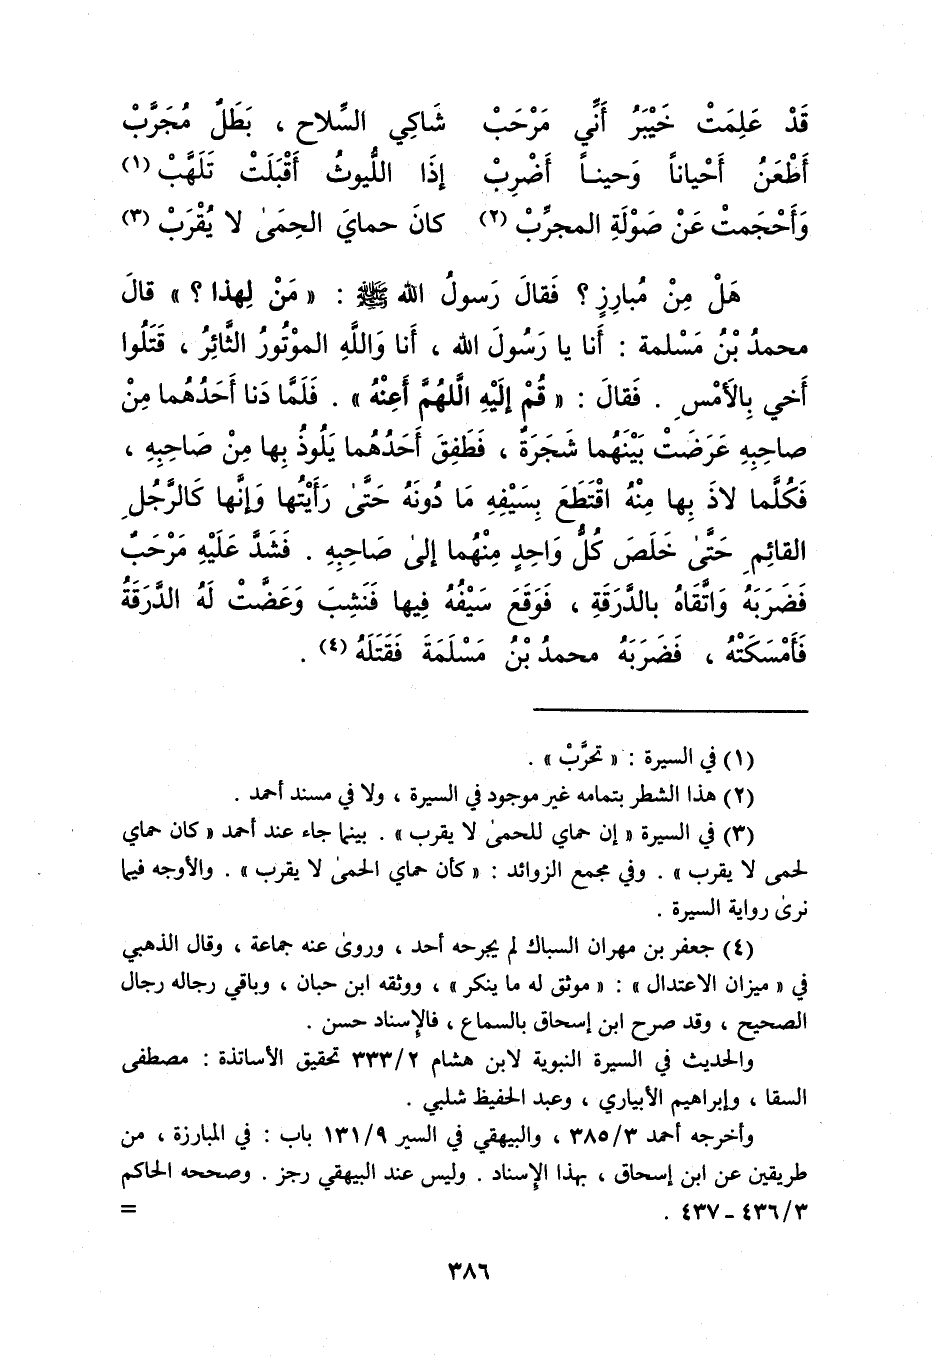 قَدْ عَلِمَتْ خَيْبَرُ أَنِّي مَرْحَبْ شَاكِي السِّلاحِ ، بَطَلٌ مُجَرَّبْ
أَطْعَنُ أَحْياناً وَحيناً أَضْرِبْ إذَا اللُّيوثُ أَقْبَلَتْ تَلَهَّبْ (١)
وَأَحْجَمتْ عَنْ صَوْلَةِ المجرِّبْ (٢) كانَ حمايَ الحِمَىٰ لا يُقْرَبْ (٣)
هَلْ مِنْ مُبارِزٍ ؟ فَقالَ رَسولُ الله ﷺ : « مَنْ لِهذا ؟ » قالَ
محمدُ بْنُ مَسْلمة : أَنا يا رَسُولَ الله ، أَنا وَاللَّهِ الموْتُورُ الثَّائِرُ ، قَتَلُوا
أَخي بِالَأمْسِ . فَقالَ : « قُمْ إلَيْهِ الَّلهُمَّ أَعِنْهُ » . فَلَمَّا دَنا أَحَدُهُما مِنْ
صاحِبِهِ عَرَضَتْ بَيْنَهُما شَجَرَةٌ ، فَطَفِقَ أَحَدُهُما يَلُوذُ بِها مِنْ صَاحِبِهِ ،
فَكُلَّما لاذَ بِها مِنْهُ اقْتَطَعَ بِسَيْفِهِ مَا دُونَهُ حَتَّىٰ رَأَيْتُها وَإنَّها كَالرَّجُلِ
القائِمِ حَتَّىٰ خَلَصَ كُلُّ وَاحِدٍ مِنْهُما إلىٰ صَاحِبِهِ . فَشَدَّ عَلَيْهِ مَرْحَبٌ
فَضَرَبَهُ وَاتَّقَاهُ بالدَّرَقَةِ ، فَوَقَعَ سَيْفُهُ فِيها فَنَشِبَ وَعَضَّتْ لَهُ الدَّرَقَةُ
فَأَمْسَكَتْهُ ، فَضَرَبَهُ محمدُ بْنُ مَسْلَمَةَ فَقَتَلَهُ (٤) .
(١) في السيرة : « تحرَّبْ » .
(٢) هذا الشطر بتمامه غير موجود في السيرة ، ولا في مسند أحمد .
(٣) في السيرة « إن حماي للحمىٰ لا يقرب » . بينما جاء عند أحمد « كان حماي
لحمى لا يقرب » . وفي مجمع الزوائد : « كأن حماي الحمىٰ لا يقرب » . والأوجه فيما
نرىٰ رواية السيرة .
(٤) جعفر بن مهران السباك لم يجرحه أحد ، وروىٰ عنه جماعة ، وقال الذهبي
في « ميزان الاعتدال » : « موثق له ما ينكر » ، ووثقه ابن حبان ، وباقي رجاله رجال
الصحيح ، وقد صرح ابن إسحاق بالسماع ، فالإسناد حسن .
والحديث في السيرة النبوية لابن هشام ٣٣٣/٢ تحقيق الأساتذة : مصطفى
السقا ، وإبراهيم الأبياري ، وعبد الحفيظ شلبي .
وأخرجه أحمد ٣٨٥/٣ ، والبيهقي في السير ١٣١/٩ باب : في المبارزة ، من
طريقين عن ابن إسحاق ، بهذا الإسناد . وليس عند البيهقي رجز . وصححه الحاكم
٤٣٦/٣ ـ ٤٣٧ . =
٣٨٦